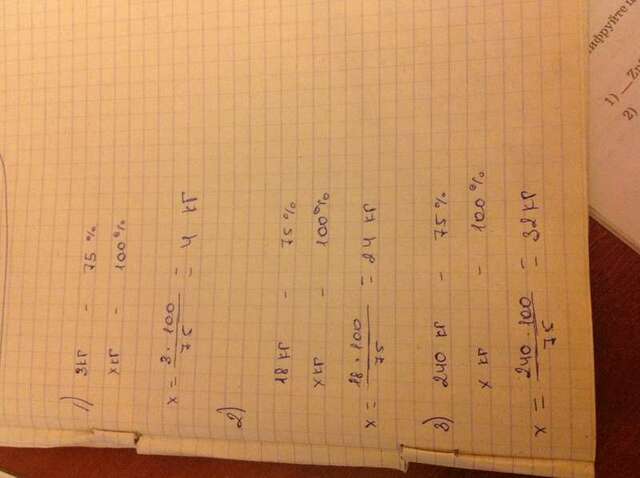 1) 3кг - 75%
хкг - 100%
х = 3 · 100 / 75 = 4 кг
2)
18 кг - 75%
хкг - 100%
х = 18 · 100 / 75 = 24 кг
3) 240 кг - 75%
х кг - 100%
х = 240 · 100 / 75 = 32кг
ифруйте
1) —
2)